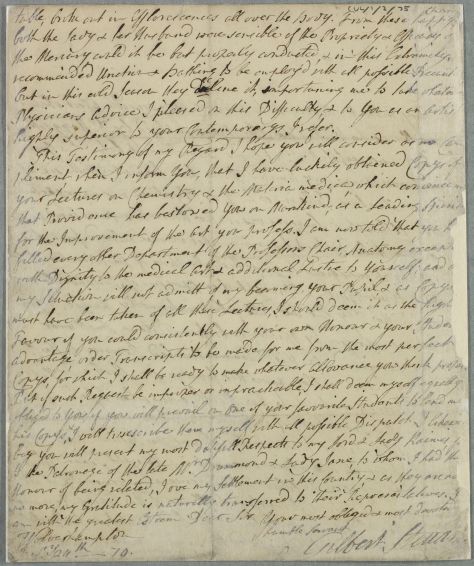 CUL/1/2/75
table broke out in Efflorescences all over the Body. From these happy
both the Lady & her Husband were sensible of the Propriety & Efficacy of
the Mercury could it be but properly conducted & in this Extremity
recommended Unction & Bathing to be employ'd with all possible
but in this cold Season they decline it, importuning me to take
Physicians advice I pleased in this Difficulty & to you as an Artist
highly superior to your Contemporarys I refer.
This Testimony of my Regard I hope you will consider as no
pliment when I inform you, that I have luckily obtained Copys of
your Lectures on Chemistry & the Materia medica which
that Providence has bestowed you on Mankind, as a leading
for the Improvement of the Art you profess. I am now told that you
filled every other Department of the Professors Chair, Anatomy
with Dignity to the medical Art & additional Lustre to Yourself, and as
my Situation will not admitt of my becoming your Pupil & as Copys
must have been taken of all these Lectures, I should deem it as the highest
Favour if you could consistently with your own Honour & your
advantage order Transcripts to be made for me from the most perfect
Copys, for which I shall be ready to make whatever Allowance you think proper
But if such Request be improper or impracticable, I shall deem myself equally
obliged to you if you will prevail on one of your favourite Students to lend me
his Copys. I will transcribe them myself with all possible Dispatch. I
beg you will present my most dutifull Respects to my Lord & Lady Kaimes
To the Patronage of the late Mr Drummond & Lady Jane, to whom I had the
Honour of being related, I owe my Settlement in this Country & as they are no
more, my Gratitude is naturally transferred to their Representatives. I
am with the greatest Esteem Dear Sir Your most obliged & most devoted
humble Servant
Wolverhampton
24th 70.